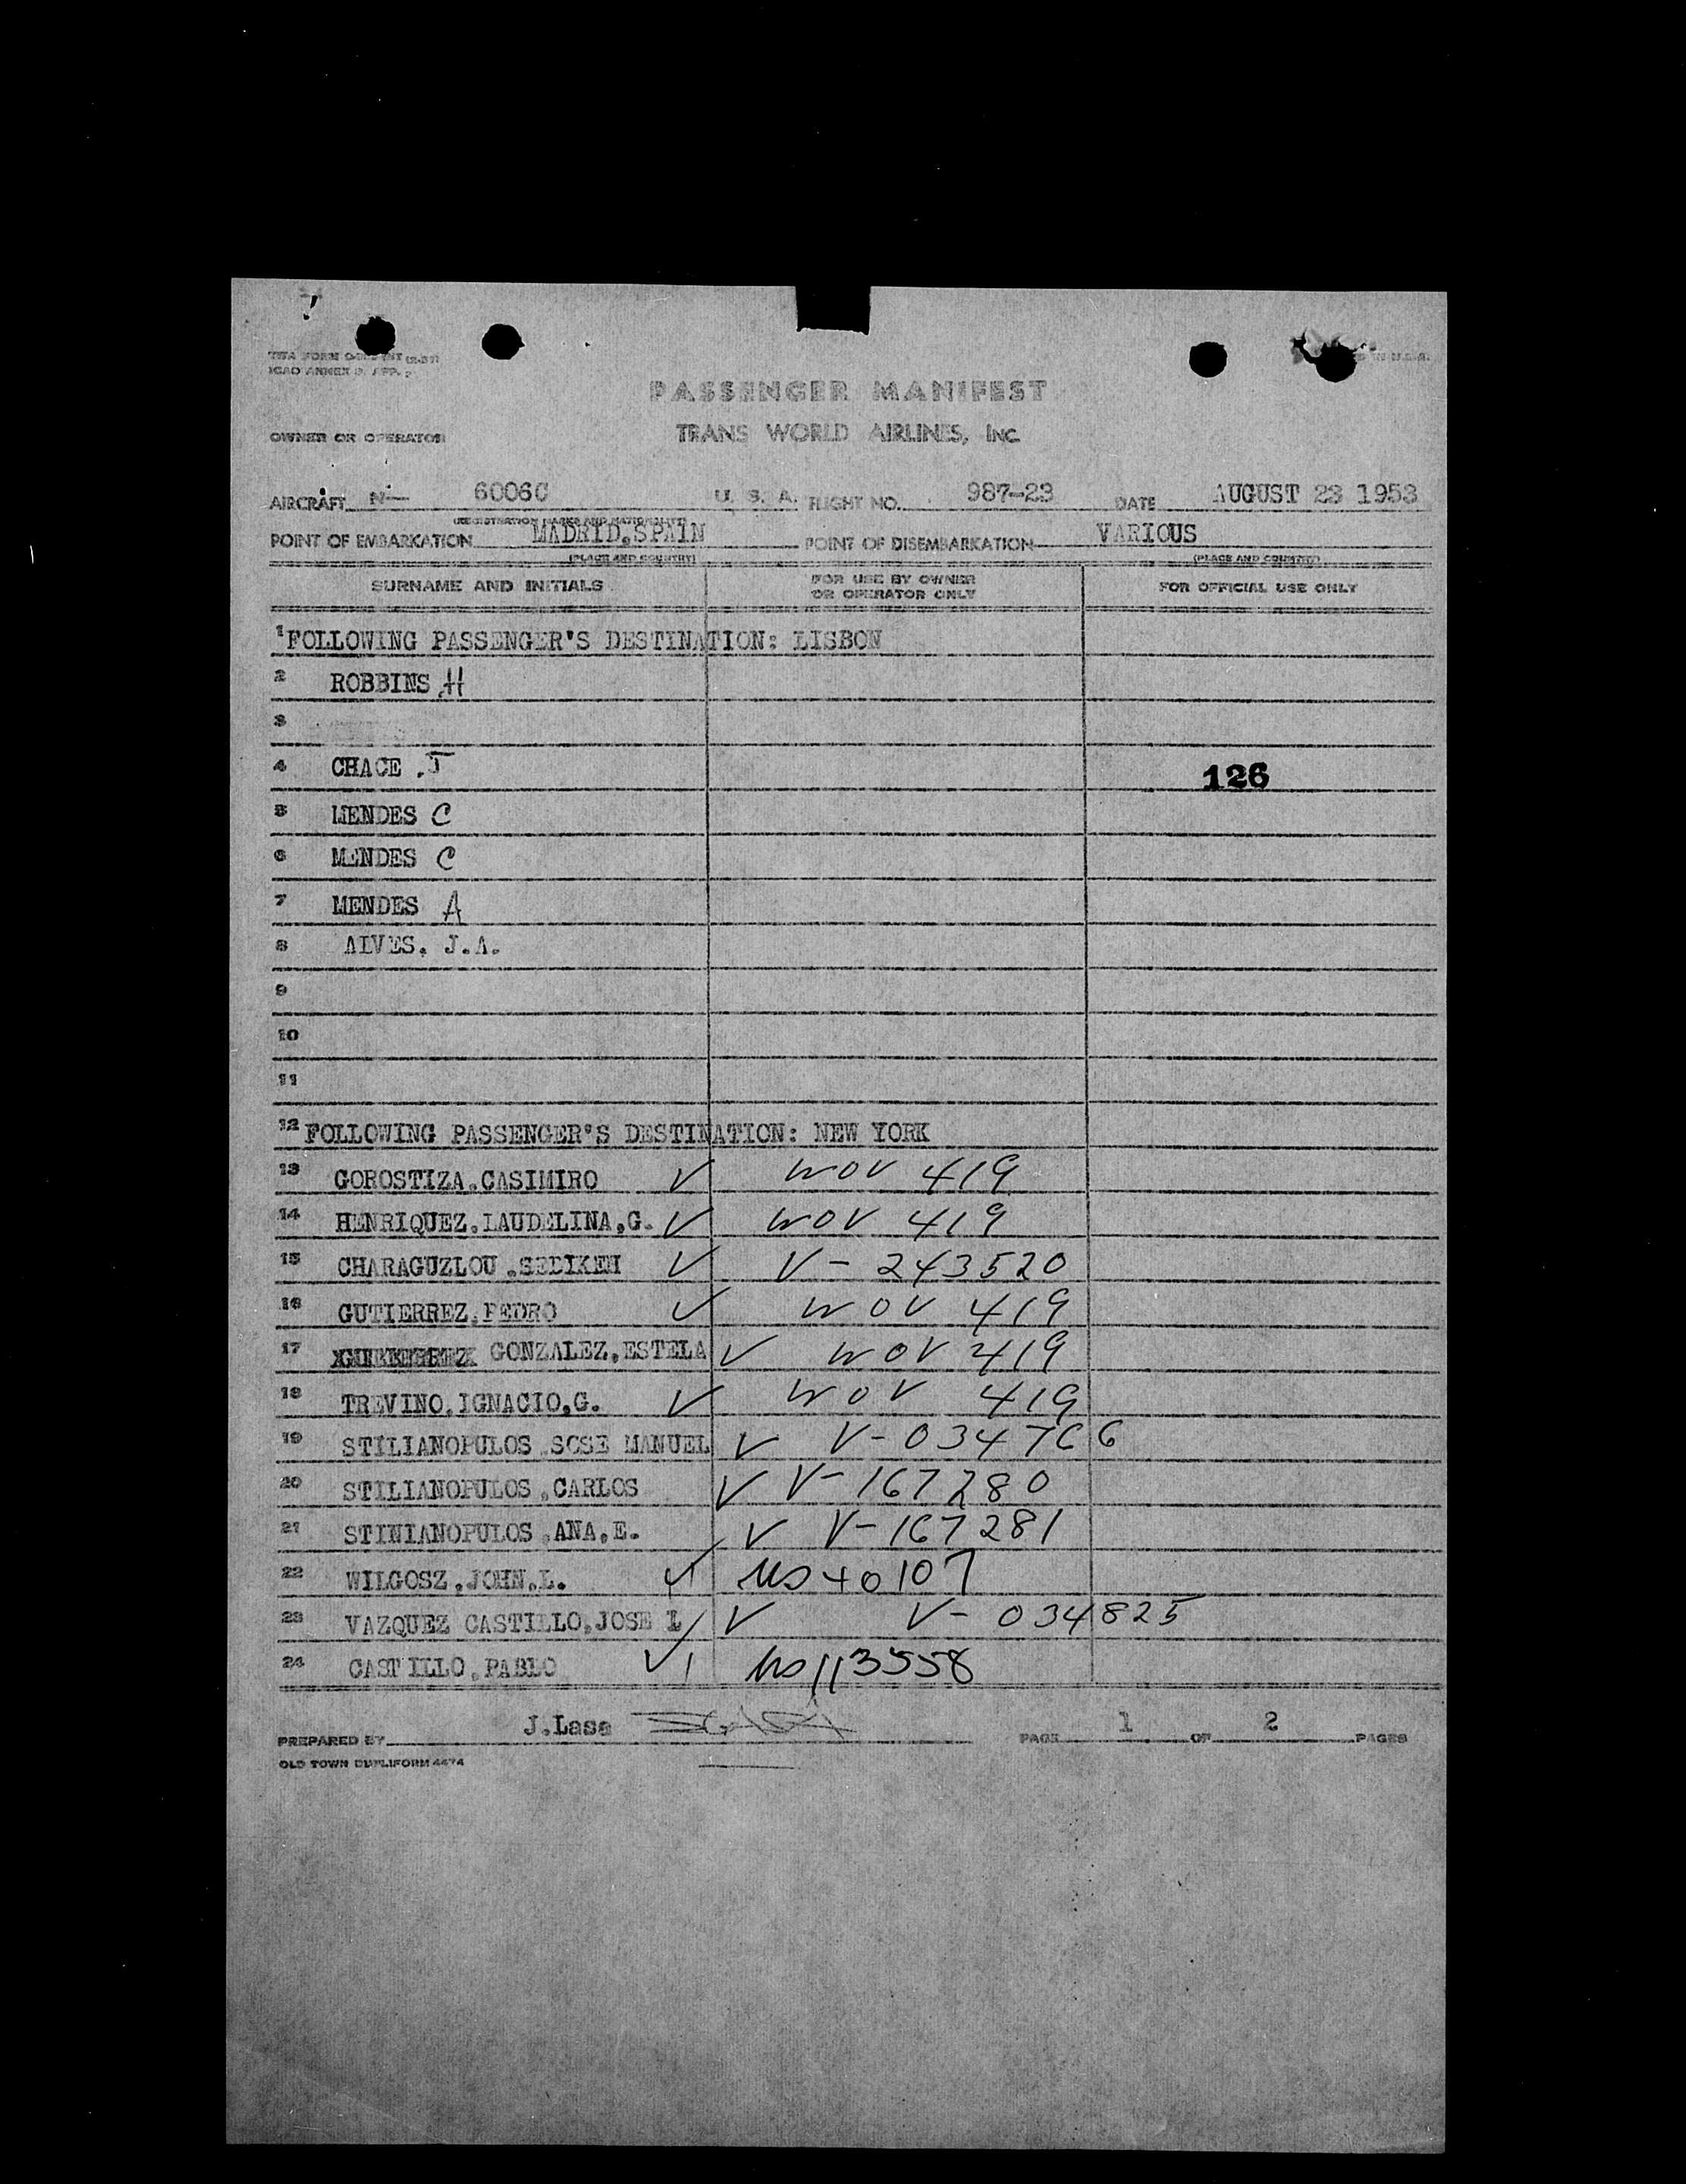 ICAO ANNEX 9, APP.
PASSENGER MANIFEST
OWNER OR OPERATOR TRANS WORLD AIRLINES, INC.
AIRCRAFT N- 6006C U. S. A. FLIGHT NO. 987-23 DATE AUGUST 23 1953
(REGISTRATION MARKS AND NATIONALITY)
POINT OF EMBARKATION MADRID,SPAIN POINT OF DISEMBARKATION VARIOUS
(PLACE AND COUNTRY) (PLACE AND COUNTRY)
SURNAME AND INITIALS FOR USE BY OWNER OR OPERATOR ONLY FOR OFFICIAL USE ONLY
1 FOLLOWING PASSENGER'S DESTINATION: LISBON
2 ROBBINS,H
3
4 CHACE .J 126
5 MENDES C
6 MENDES C
7 MENDES A
8 ALVES, J.A.
9
10
11
12 FOLLOWING PASSENGER'S DESTINATION: NEW YORK
13 GOROSTIZA,CASIMIRO ✓ WOV 419
14 HENRIQUEZ,LAUDELINA,G. ✓ WOV 419
15 CHARAGUZLOU ,SEDIKEH ✓ V-243520
16 GUTIERREZ,PEDRO ✓ WOV 419
17 GONZALEZ,ESTELA ✓ WOV 419
18 TREVINO,IGNACIO,G. ✓ WOV 419
19 STILIANOPULOS ,SOSE MANUEL ✓ V-034766
20 STILIANOPULOS ,CARLOS ✓ V-167280
21 STINIANOPULOS ,ANA,E. ✓ V-167281
22 WILGOSZ,JOHN,L. ✓ US 40107
23 VAZQUEZ CASTILLO,JOSE L ✓ V-034825
24 CASTILLO,PABLO ✓ US 113558
PREPARED BY J.Lasa PAGE 1 OF 2 PAGES
OLD TOWN DUPLIFORM 4474